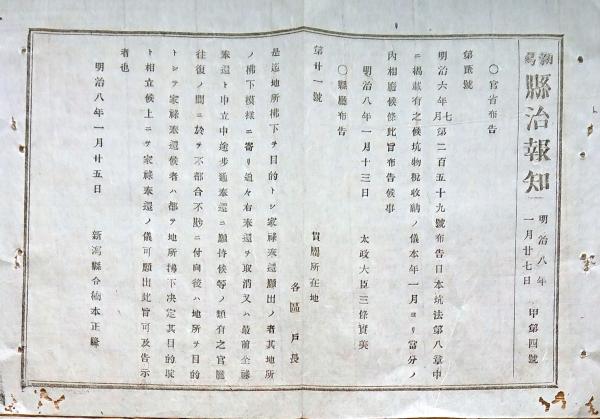 新潟縣治報知
明治八年
一月廿七日
甲第四號
〇官省布告
第貳號
明治六年七月第二百五十九號布告日本坑法第八章中
ニ揭載有之候坑物稅收納ノ儀本年一月ヨリ當分ノ
內相廢候條此旨布告候事
明治八年一月十三日
太政大臣三條實美
〇縣廳布告
第廿一號
貫屬所在地
各區戶長
是迄地所拂下ヲ目的トシ家祿奉還願出ノ者其地所
ノ拂下模樣ニ寄リ追々右奉還ヲ取消又ハ最前全祿
奉還ト申立中途步通奉還ニ願持候等ノ類有之官廳
往復ノ間ニ於テ不都合不尠ニ付向後ハ地所ヲ目的
トシテ家祿奉還候者ハ都テ地所拂下決定其目的聢
ト相立候上ニテ家祿奉還ノ儀可願出此旨可及告示
者也
明治八年一月廿五日
新潟縣令楠本正隆